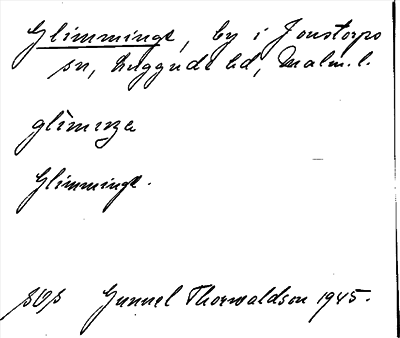 Glimminge, by i Jonstorps
sn, Luggude hd, Malm. l.
glìmiŋa
Glimminge.
SOf Gunnel Thorwaldson 1945.